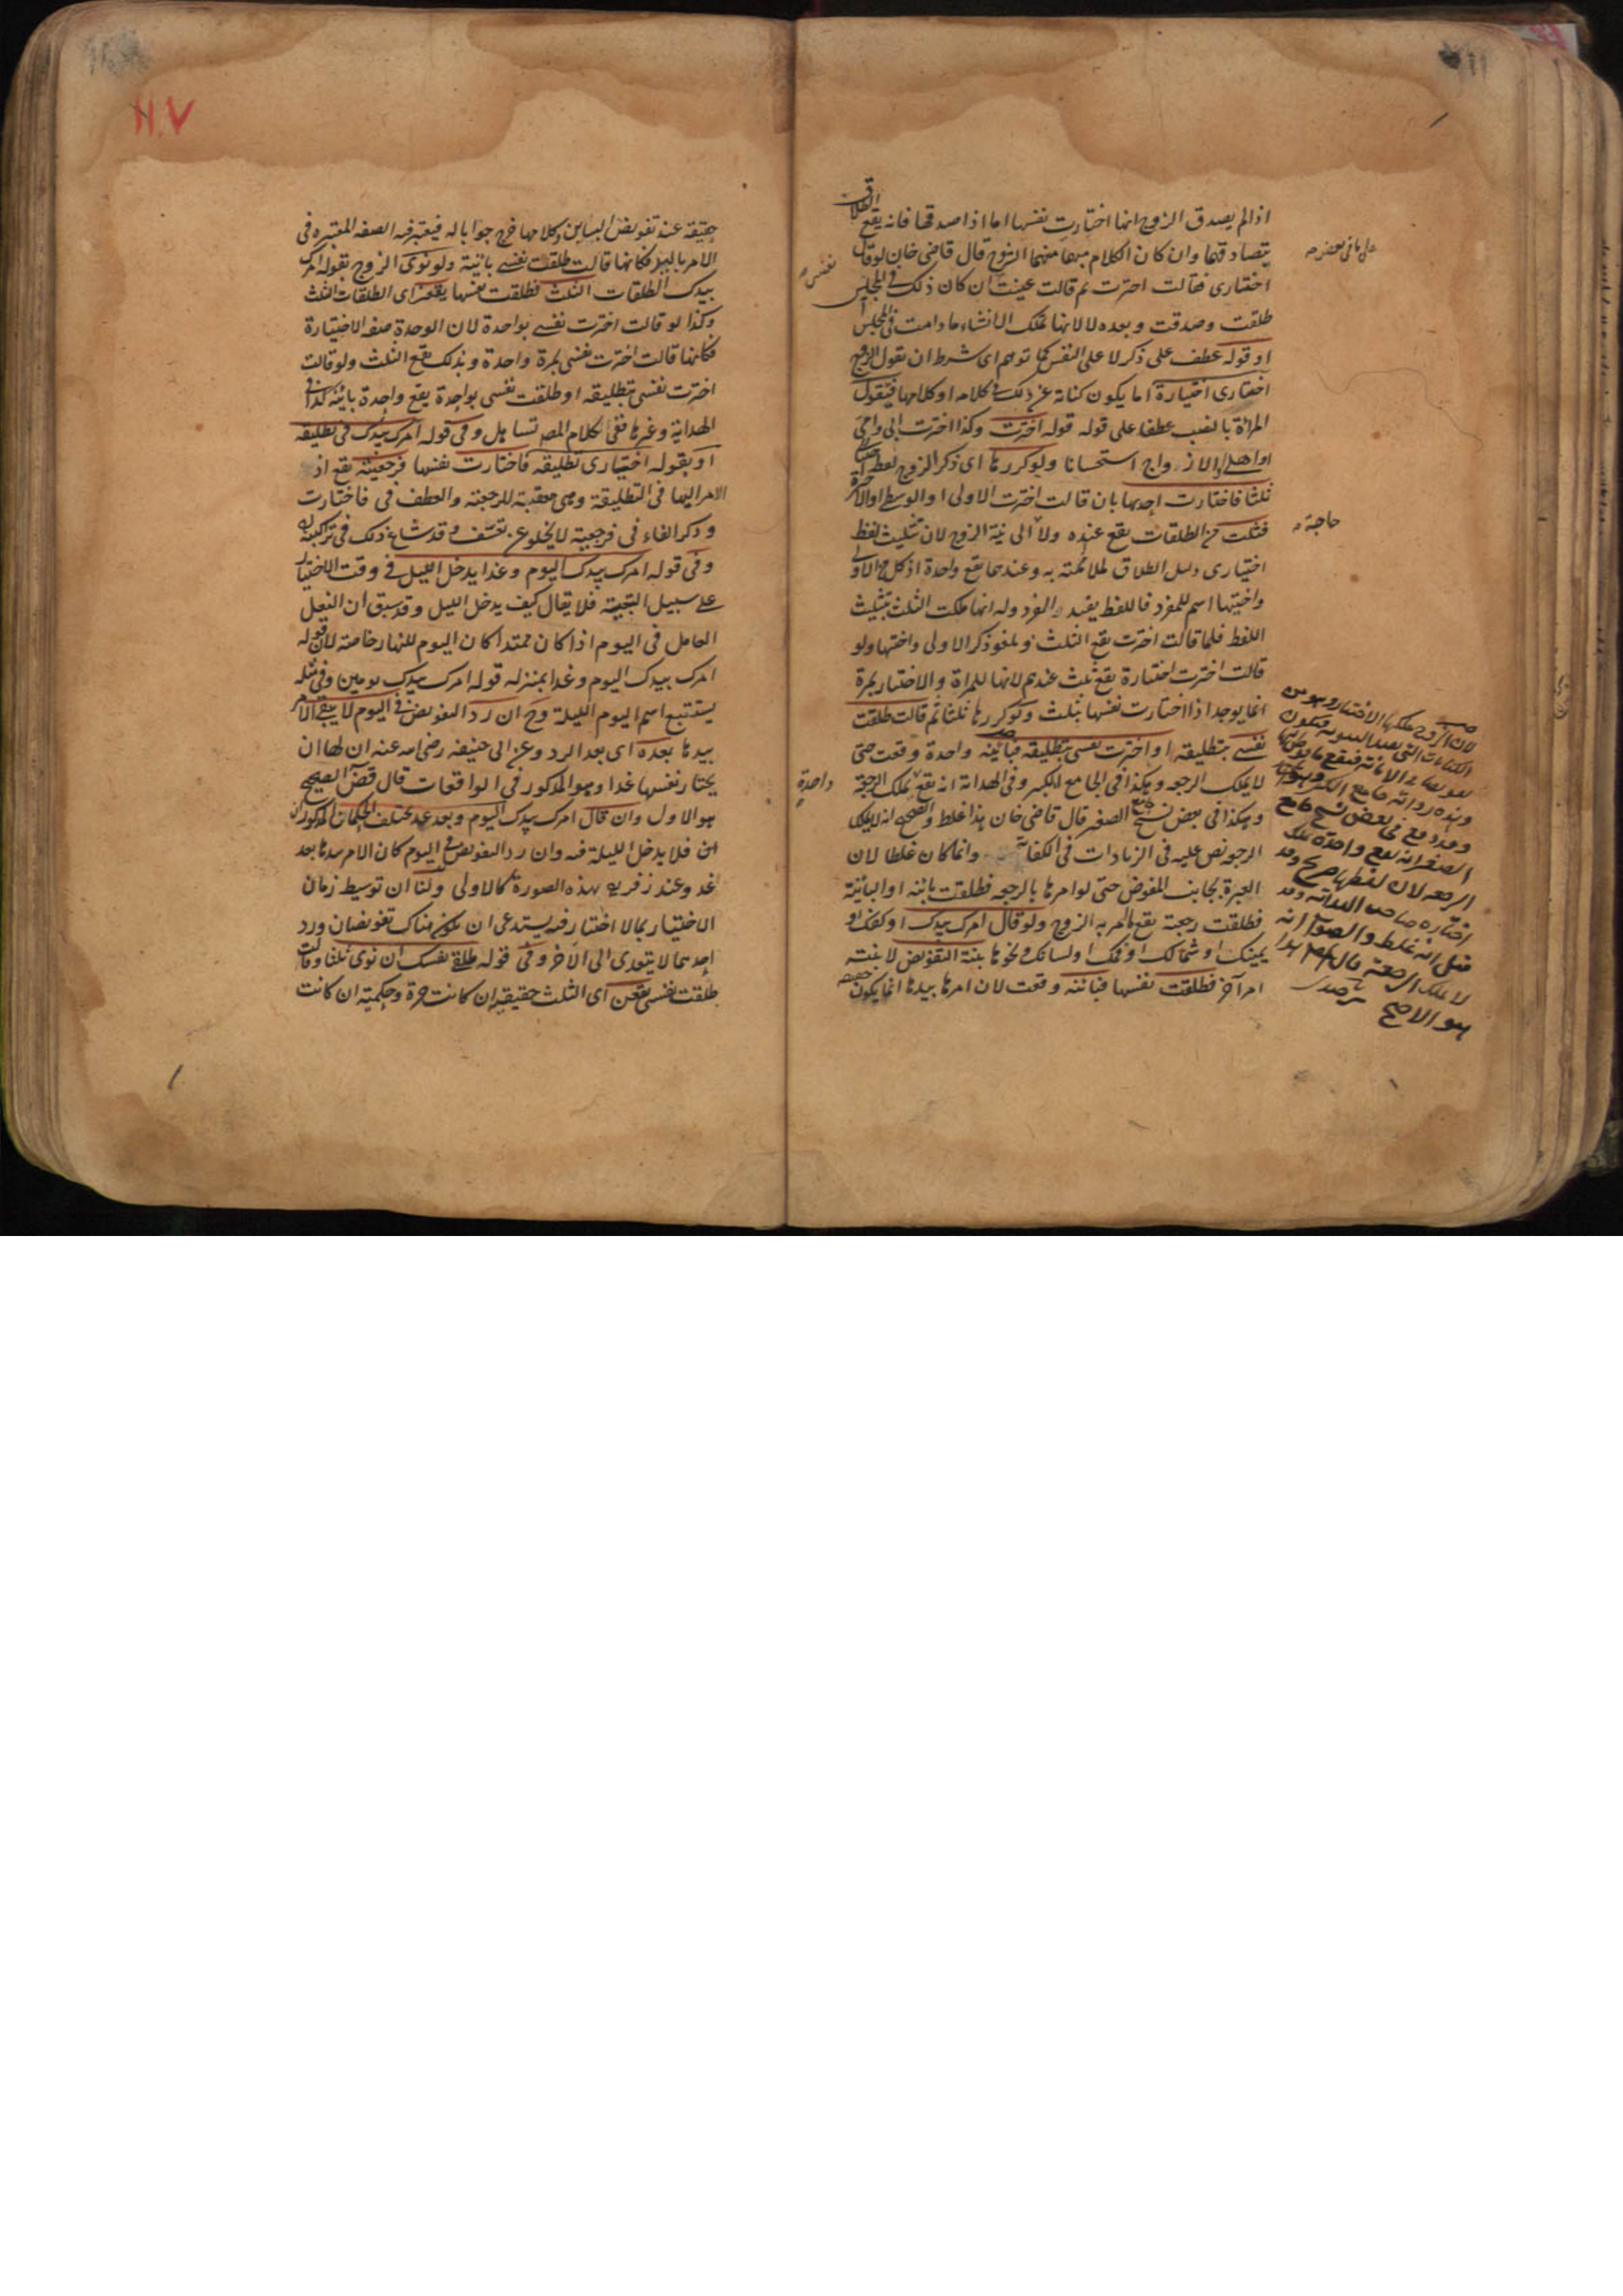 اذا لم يصدق الزوج انها اختارت نفسها اما اذا صدقها فانه يقع الطلاق
بتصادقهما وان كان الكلام مبهما منهما قال قاضي خان لو قال
اختاري فقالت اخترت ثم قالت عينت ان كان ذلك في المجلس
طلقت وصدقت وبعده لا لانها تملك الانشاء ما دامت في المجلس
او قوله عطف على ذكر لا على النفس كما توهم اي شرط ان يقول الزوج
اختاري اختيارة اما يكون كناية عن ذلك في كلامه او كلامها فيقول
المراة بالنصب عطفا على قوله قوله اخترت وكذا اخترت ابي وامي
او اهلي او الازواج استحسانا ولو كررها اي ذكر الزوج لفظ
ثلثا فاختارت احديها بان قالت اخترت الاولى او الوسطى او الاخيرة
فثلث من الطلقات يقع عنده ولا الى نية الزوج لان تثليث لفظ
اختياري دليل الطلاق لملائمته به وعندهما يقع واحدة اذ كل من الاولى
واختيها اسم للمفرد فاللفظ يفيد الفرد وله انها ملكت الثلث بتثليث
اللفظ فلما قالت اخترت يقع الثلث ويلغو ذكر الاولى واختها ولو
قالت اخترت اختيارة يقع ثلث عندهم لانها للمرة والاختيار بمرة
انما يوجد اذا اختارت نفسها بثلث ولو كررها ثلثا ثم قالت طلقت
نفسي بتطليقة او اخترت نفسي بتطليقة فبائنة واحدة وقعت حتى
لا يملك الرجعة وهكذا في الجامع الكبير وفي الهداية انه يقع يملك الرجعة
وهكذا في بعض نسخ الصغير قال قاضي خان هذا غلط والصحيح انه لا يملك
الرجعة نص عليه في الزيادات في الكفاية وانما كان غلطا لان
العبرة بجانب المفوض حتى لو امرها بالرجعة فطلقت بائنة او البائنة
فطلقت رجعية يقع ما امر به الزوج ولو قال امرك بيدك او كفك او
يمينك او شمالك او فمك او لسانك ونحوها بنية التفويض لا بنية
امر آخر فطلقت نفسها فبائنة وقعت لان امرها بيدها انما يكون
نفسي
حاجة
واحدة
لان الزوج ملكها الاختيار وهو من
الكنايات
وهذه رواية جامع الكبير
وقد وقع في بعض نسخ جامع
الصغير انه يقع واحدة يملك
الرجعة لان لفظها صريح وقد
اختاره صاحب الهداية وقد
قيل انه غلط والصواب انه
لا يملك الرجعة
هو الاصح
١١٠٧
حقيقة عند تفويض البائن وكلامها خرج جوابا له فيعتبر فيه الصفة المعتبرة في
الامر باليد فكانها قالت طلقت نفسي بائنة ولو نوى الزوج بقوله امرك
بيدك الطلقات الثلث فطلقت نفسها يقعن اي الطلقات الثلث
وكذا لو قالت اخترت نفسي بواحدة لان الوحدة صفة الاختيارة
فكانها قالت اخترت نفسي بمرة واحدة وبذلك يقع الثلث ولو قالت
اخترت نفسي بتطليقة او طلقت نفسي بواحدة يقع واحدة بائنة كذا في
الهداية وغيرها ففي كلام المصنف تساهل وفي قوله امرك بيدك في تطليقة
او بقوله اختياري تطليقة فاختارت نفسها فرجعية يقع اذ
الامر اليها في التطليقة وهي معقبة للرجعة والعطف في فاختارت
وذكر الفاء في فرجعية لا يخلو عن تعسف وقد شاع ذلك في تراكيبه
وفي قوله امرك بيدك اليوم وغدا يدخل الليل في وقت الاختيار
على سبيل التبعية فلا يقال كيف يدخل الليل وقد سبق ان الفعل
العامل في اليوم اذا كان ممتدا كان اليوم للنهار خاصة لان قوله
امرك بيدك اليوم وغدا بمنزلة قوله امرك بيدك يومين وفي مثله
يستتبع اسم اليوم الليلة وح ان رد التفويض في اليوم لا يبقى الامر
بيدها بعده اي بعد الرد وعن ابي حنيفة رضي الله عنه ان لها ان
يختار نفسها غدا وهو المذكور في الواقعات قال الصحيح
هو الاول وان قال امرك بيدك اليوم وبعد غد يختلف الحكمان المذكوران
اي فلا يدخل الليلة فيه وان رد التفويض في اليوم كان الامر بيدها بعد
غد وعند زفر هذه الصورة كالاولى ولنا ان توسيط زمان
الاختيار بما لا اختيار فيه يستدعي ان يكون هناك تفويضان ورد
احدهما لا يتعدى الى الآخر وفي قوله طلقي نفسك ان نوى ثلثا وقالت
طلقت نفسي يقعن اي الثلث حقيقة ان كانت حرة وحكمية ان كانت